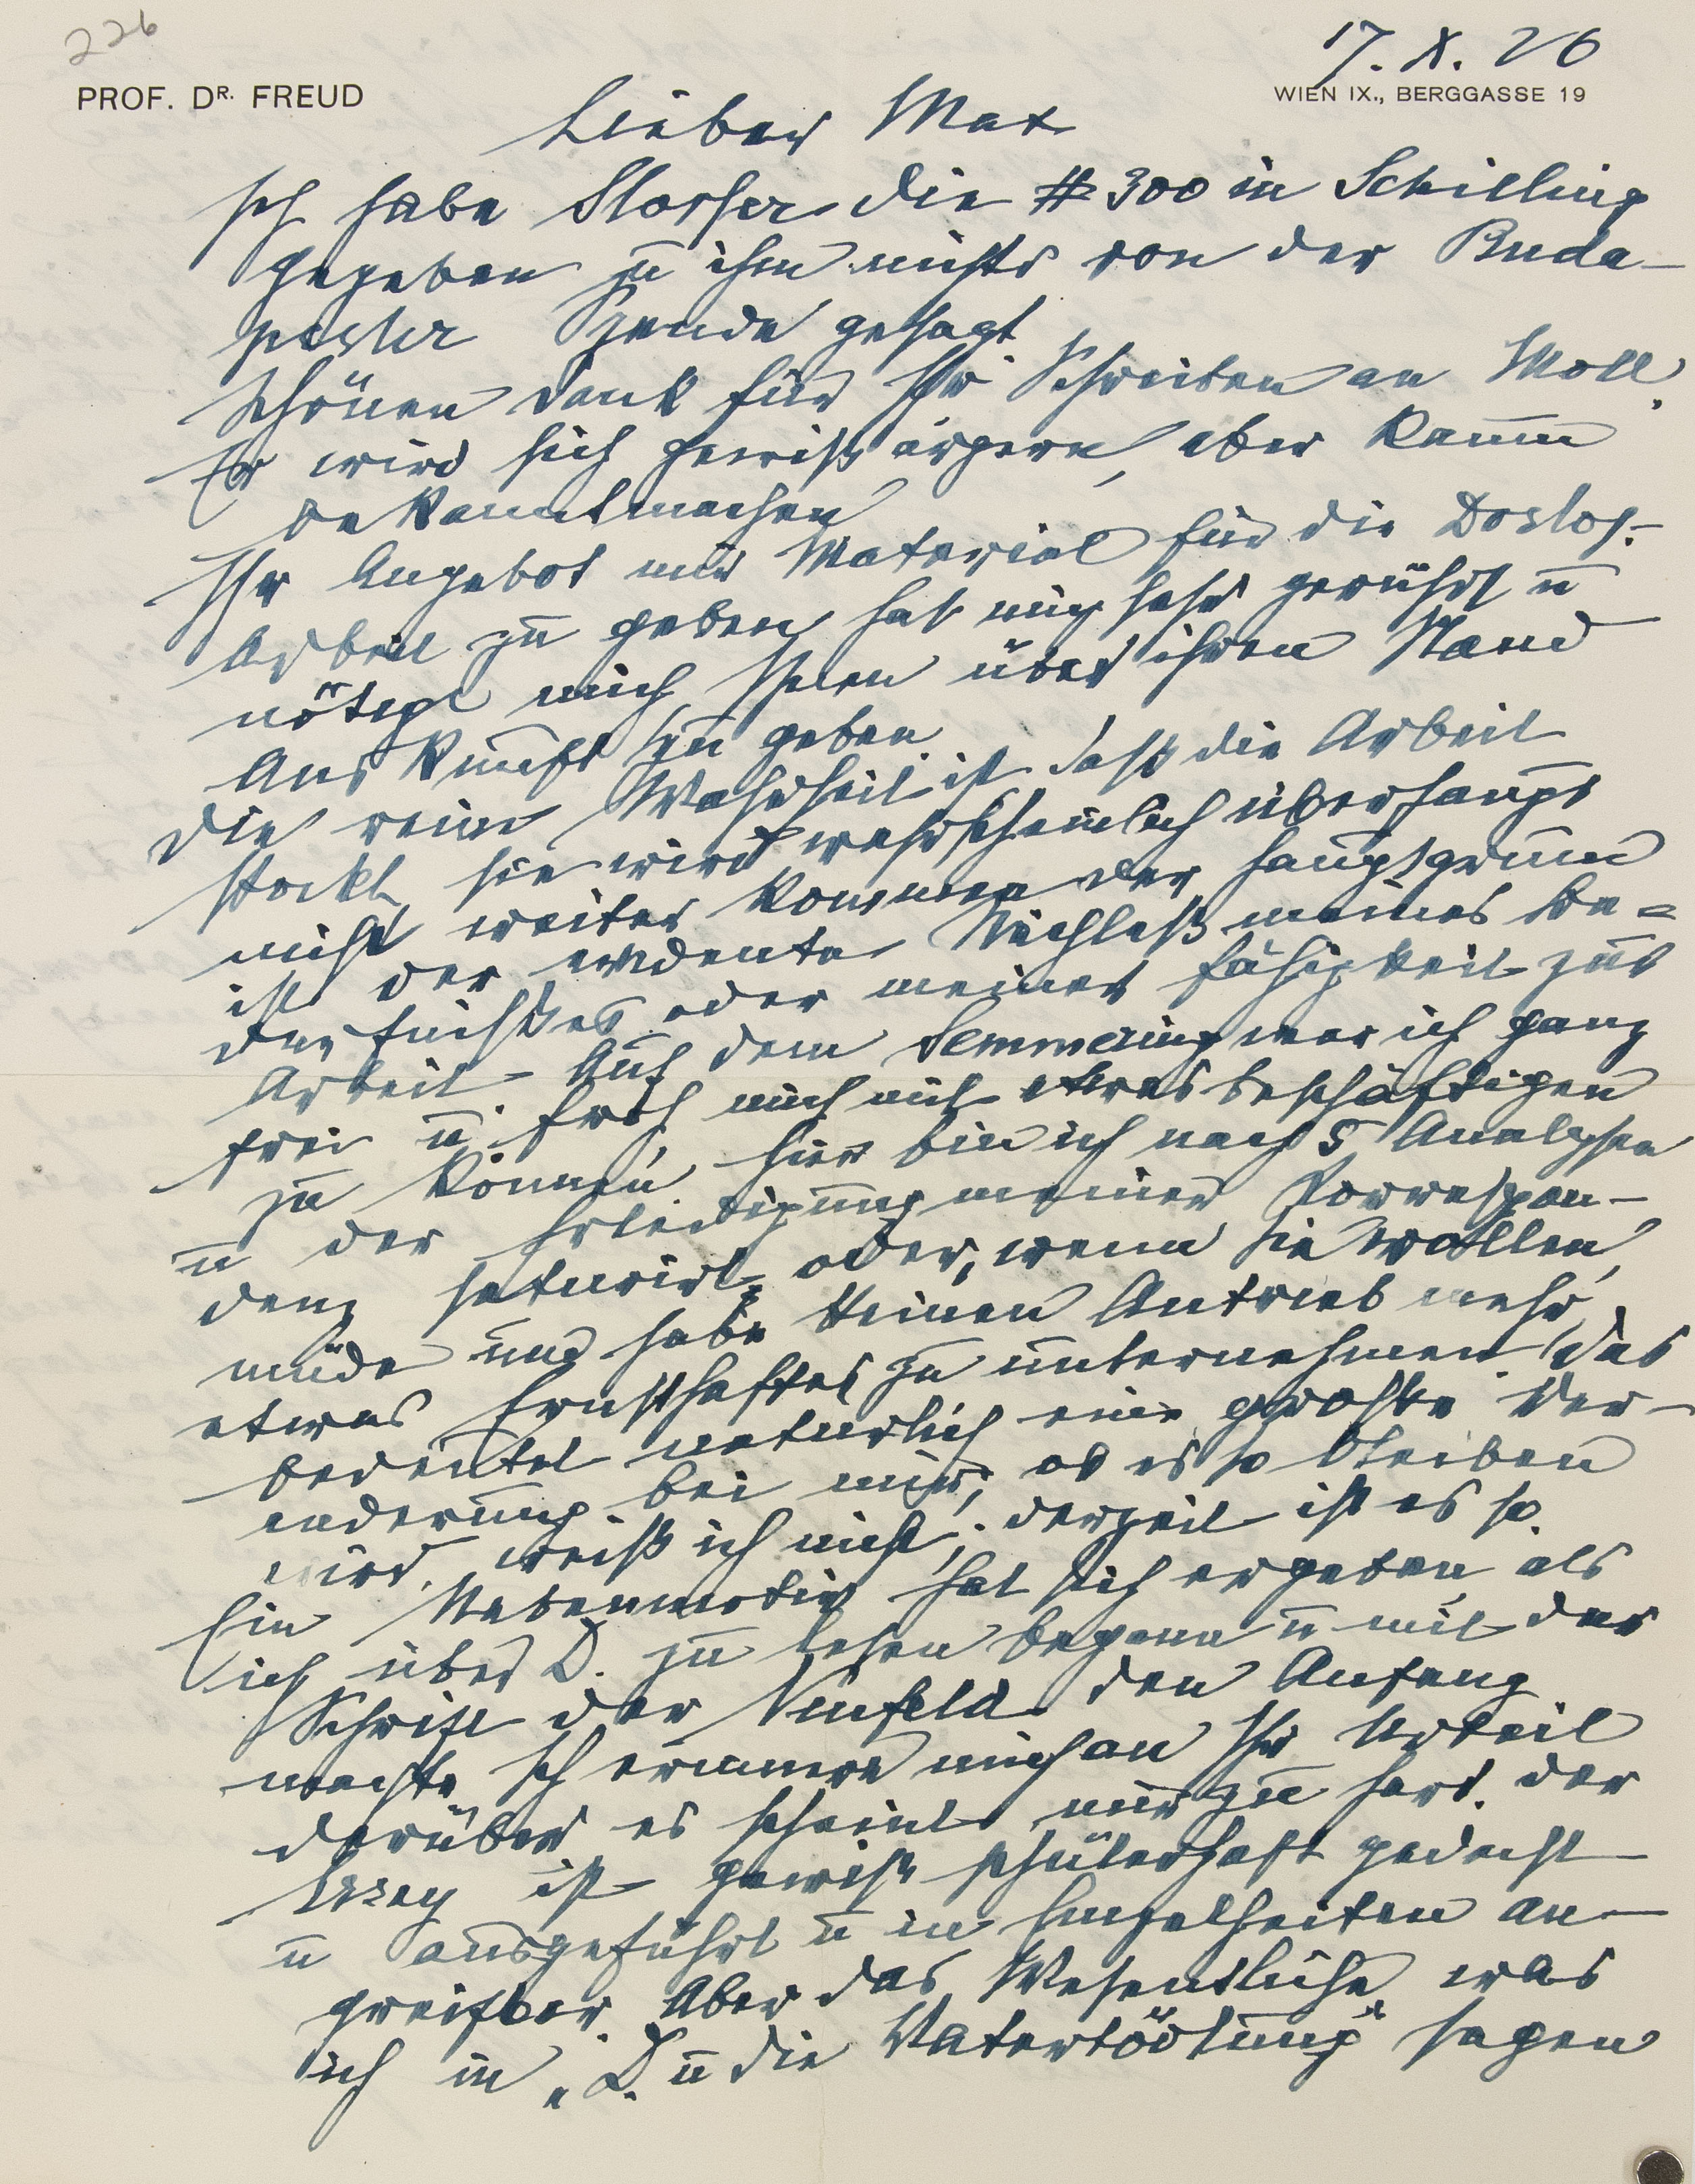 226
17. X. 26
PROF. DR. FREUD
WIEN IX., BERGGASSE 19
Lieber Max
Ich habe Storfer die #300 in Schilling
gegeben u ihm nichts von der Buda-
pester Spende gesagt.
Schönen Dank für Ihr Schreiben an Moll.
Er wird sich gewiß ärgern, aber kaum
bekanntmachen
Ihr Angebot mir Material für die Dostoj.-
Arbeit zu geben, hat mich sehr gerührt u
nötigt mich, Ihnen über ihren Stand
Auskunft zu geben.
Die reine Wahrheit ist, daß die Arbeit
stockt, sie wird wahrscheinlich überhaupt
nicht weiter kommen. Der Hauptgrund
ist der evidente Nachlaß meines Be=
dürfnisses oder meiner Fähigkeit zur
Arbeit. Auf dem Semmering war ich ganz
frei u froh mich mit etwas beschäftigen
zu können, hier bin ich nach 5 Analysen
u der Erledigung meiner Korrespon-
denz saturirt, oder, wenn Sie wollen,
müde und habe keinen Antrieb mehr,
etwas Ernsthaftes zu unternehmen. Das
bedeutet natürlich eine große Ver-
änderung bei mir; ob es so bleiben
wird, weiß ich nicht; derzeit ist es so.
Ein Nebenmotiv hat sich ergeben, als
ich über D. zu lesen begann u mit der
Schrift der Neufeld den Anfang
machte. Ich erinnere mich an Ihr Urteil
darüber, es scheint mir zu hart. Der
Essay ist gewiß schülerhaft gedacht
u ausgeführt u in Einzelheiten an-
greifbar. Aber das Wesentliche, was
ich in „D. u die Vatertödtung" sagen